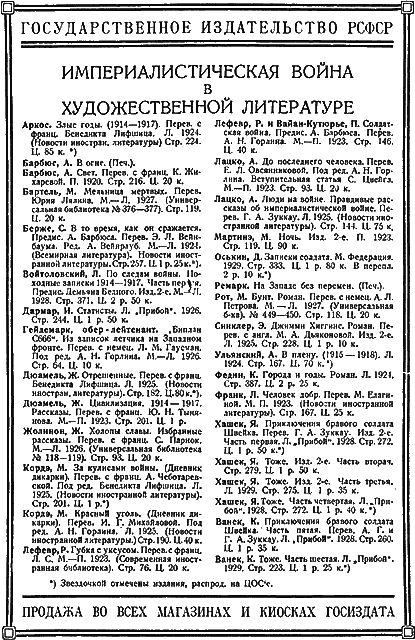 ГОСУДАРСТВЕННОЕ ИЗДАТЕЛЬСТВО РСФСР
ИМПЕРИАЛИСТИЧЕСКАЯ ВОЙНА
В
ХУДОЖЕСТВЕННОЙ ЛИТЕРАТУРЕ
Аркос. Злые годы. (1914—1917). Перев. с
франц. Бенедикта Лифшица. Л. 1924.
(Новости иностран. литературы) Стр. 224.
Ц. 85 к. *)
Барбюс, А. В огне. (Печ.).
Барбюс, А. Свет. Перев. с франц. К. Жи-
харевой. П. 1920. Стр. 216. Ц. 20 к.
Бартель, М. Мельница мертвых. Перев.
Юрия Лилина. М.—Л. 1927. (Универ-
сальная библиотека № 376—377). Стр. 119.
Ц. 20 к.
Берже, С. В то время, как он сражается.
Предис. А. Барбюса. Перев. Э. Л. Вейн-
баума. Ред. А. Вейнрауб. М.—Л. 1924.
(Всемирная литература). Новости иност-
ранной литературы. Стр. 257. Ц. 1 р. 25 к. *).
Войтоловский, Л. По следам войны. По-
ходные записки 1914—1917. Часть первая.
Предис. Демьяна Бедного. Изд. 2-е. М.—Л.
1928. Стр. 371. Ц. 2 р. 50 к.
Дармар, И. Статисты. Л. „Прибой". 1926.
Стр. 244. Ц. 1 р. 50 к.
Гейдемарк, обер-лейтенант. „Биплан
С666". Из записок летчика на Западном
фронте. Перев. с немец. Л. М. Гаусман.
Под ред. А. Н. Горлина. М.—Л. 1926.
Стр. 64. Ц. 10 к.
Дюамель, Ж. Отрешенные. Перев. с франц.
Бенедикта Лифшица. Л. 1925. (Новости
иностран. литературы). Стр. 182. Ц. 80 к. *).
Дюамель, Ж. Цивилизация. 1914—1917.
Рассказы. Перев. с франц. Ю. Н. Тыня-
нова. М.—П. 1923. Стр. 201. Ц. 1 р.
Жолинон, Ж. Холопы славы. Избранные
рассказы. Перев. с франц. С. Парнок.
М.—Л. 1926. (Универсальная библиотека
№ 118—119). Стр. 93. Ц. 20 к.
Кордэ, М. За кулисами войны. (Дневник
дикарки). Перев. с франц. А. Чеботарев-
ской. Под ред. Бенедикта Лифшица. Л.
1925. (Новости иностранной литературы).
Стр. 201. Ц. 1 р. *)
Кордэ, М. Красный уголь. (Дневник ди-
карки). Перев. И. Г. Михайловой. Под
ред. А. Н. Горлина. Л. 1925. (Новости
иностранной литературы.) Стр. 190. Ц. 40 к.
Лефевр, Р. Губка с уксусом. Перев. с франц.
Л. С. М.—П. 1923. (Современная иност-
ранная библиотека). Стр. 76. Ц. 20 к.
Лефевр, Р. и Вайан-Кутюрье, П. Солдат-
ская война. Предис. А. Барбюса. Перев.
А. Н. Горлина. М.—П. 1923. Стр. 146.
Ц. 40 к.
Лацко, А. До последнего человека. Перев.
Е. Л. Овсянниковой. Под ред. А. Н. Гор-
лина. Вступительная статья С. Цвейга.
М.—П. 1923. Стр. 93. Ц. 20 к.
Лацко, А. Люди на войне. Правдивые рас-
сказы об империалистической войне. Пе-
рев. Г. А. Зуккау. Л. 1925. (Новости ино-
странной литературы). Стр. 144. Ц. 75 к.
Мартинэ, М. Ночь. Изд. 2-е. П. 1923.
Стр. 119. Ц. 90 к.
Оськин, Д. Записки солдата. М. Федерация.
1929. Стр. 333. Ц. 1 р. 80 к. В перепл.
2 р. 10 к. *)
Ремарк. На Западе без перемен. (Печ.).
Рот, М. Бунт. Роман. Перев. с немец. А. Л.
Петрова. М.—Л. 1927. (Универсальная
б-ка). № 449—450. Стр. 118. Ц. 20 к.
Синклер, Э. Джимми Хиггинс. Роман. Пе-
рев. с англ. М. А. Дьяконовой. Изд. 2-е.
Л. 1925. Стр. 228. Ц. 1 р. 10 к.
Ульянский, А. В плену. (1915—1918). Л.
1924. Стр. 167. Ц. 70 к. *)
Федин, К. Города и годы. Роман. Л. 1924.
Стр. 387. Ц. 2 р. 25 к.
Франк, Л. Человек добр. Перев. М. Елаги-
ной. М. П. 1923. (Новости иностранной
литературы). Стр. 167. Ц. 25 к.
Хашек, Я. Приключения бравого солдата
Швейка. Перев. Г. А. Зуккау. Изд. 2-е.
Часть первая. Л. „Прибой". 1928. Стр. 272.
Ц. 1 р. 50 к. *)
Хашек, Я. Тоже. Изд. 2-е. Часть вторая.
Стр. 279. Ц. 1 р. 50 к.
Хашек, Я. Тоже. Изд. 2-е. Часть третья.
Л. 1929. Стр. 275. Ц. 1 р. 35 к.
Хашек, Я. Тоже. Часть четвертая. Л. „При-
бой". 1928. Стр. 272. Ц. 1 р. 40 к. *)
Ванек, К. Приключения бравого солдата
Швейка. Часть пятая. Перев. А. Г. и
Г. А. Зуккау. Л. „Прибой". 1928. Стр. 260.
Ц. 1 р. 35 к.
Ванек, К. Тоже. Часть шестая. Л. „Прибой".
1929. Стр. 223. Ц. 1 р. 25 к. *)
*) Звездочкой отмечены издания, распрод. на ЦОС'е.
ПРОДАЖА ВО ВСЕХ МАГАЗИНАХ И КИОСКАХ ГОСИЗДАТА